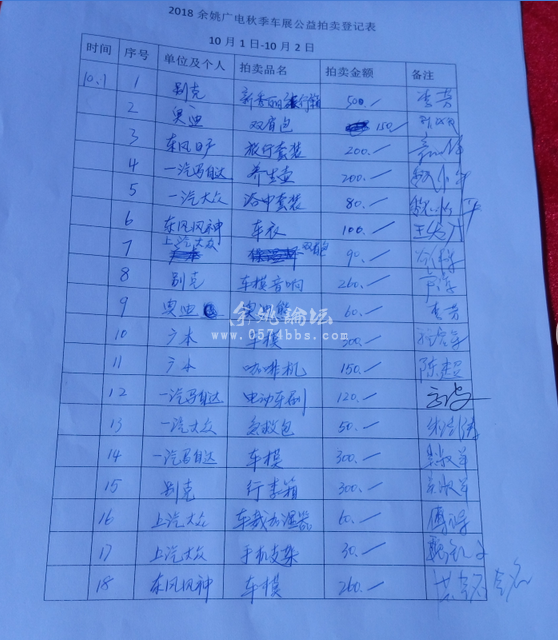 2018 余姚广电秋季车展公益拍卖登记表
10 月 1 日-10 月 2 日
时间 序号 单位及个人 拍卖品名 拍卖金额 备注
10.1 1 别克 新秀丽旅行箱 500.-
2 奥迪 双肩包 150.-
3 东风日产 旅行套装 200.-
4 一汽马自达 养生壶 200.-
5 一汽大众 浴巾套装 80.-
6 东风风神 车衣 100.-
7 上汽大众 双肩包 90.-
8 别克 车模音响 260.-
9 奥迪 60.-
10 广本 车模
11 广本 咖啡机 150.- 陈超
12 一汽马自达 电动牙刷 120.-
13 一汽大众 急救包 50.-
14 一汽马自达 车模 300.-
15 别克 行李箱 300.-
16 上汽大众 车载加湿器 60.-
17 上汽大众 手机支架 30.-
18 东风风神 车模 260.-
余姚论坛
www.0574bbs.com